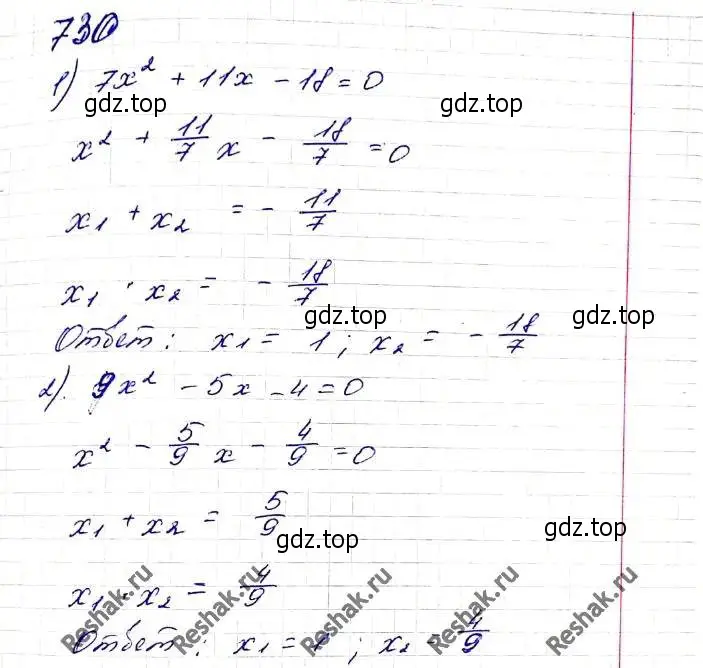 730
1) 7x² + 11x - 18 = 0
gdz.top gdz.top
x² + 11/7 x - 18/7 = 0
x₁ + x₂ = - 11/7
gdz.top
x₁ · x₂ = - 18/7
Ответ: x₁ = 1; x₂ = - 18/7
gdz.top
2). 9x² - 5x - 4 = 0
x² - 5/9 x - 4/9 = 0
gdz.top
x₁ + x₂ = 5/9
gdz.top gdz.top
x₁ · x₂ = 4/9
Ответ: x₁ = 1; x₂ - 4/9
Reshak.ru Reshak.ru Reshak.ru Reshak.ru Reshak.ru